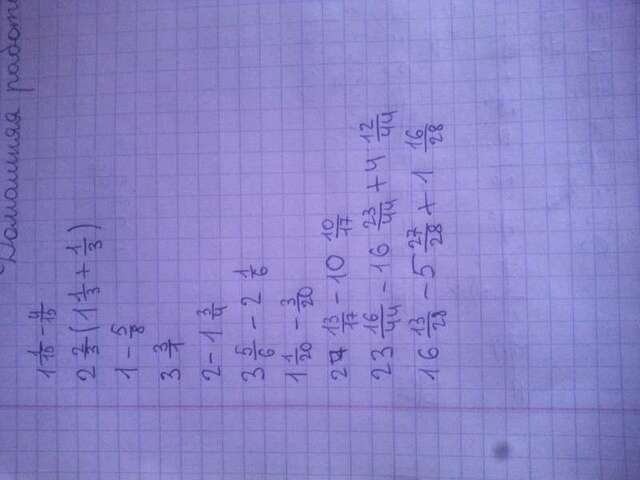 Домашняя работа
1 1/15 - 4/15
2 2/3 (1 1/3 + 1/3)
1 - 5/8
3 3/1
2 - 1 3/4
3 5/6 - 2 1/6
1 1/20 - 3/20
27 13/17 - 10 10/17
23 16/44 - 16 23/44 + 4 12/44
16 13/28 - 5 27/28 + 1 16/28